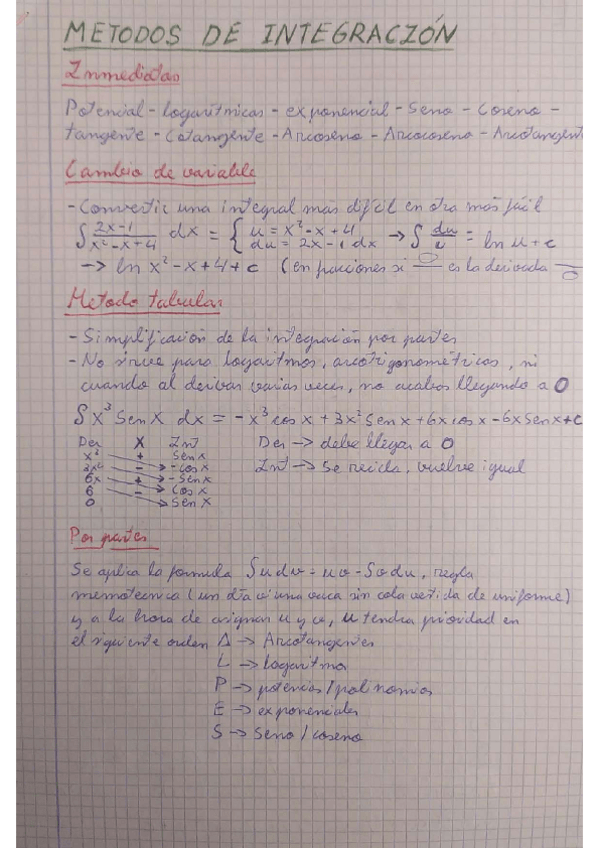 METODOS DE INTEGRACIÓN
Inmediatas
Potencial - logaritmicas - exponencial - Seno - Coseno -
tangente - Cotangente - Arcoseno - Arcocoseno - Arcotangent
Cambio de variable
- Convertir una integral mas dificil en otra más fácil
∫ 2x-1 / x²-x+4 dx = { u = x²-x+4 du = 2x-1 dx → ∫ du/u = ln u + c
→ ln x²-x+4+c (en funciones si es la derivada
Metodo tabular
- Simplificación de la integración por partes
- No sirve para logaritmos, arcotrigonométricos, ni
cuando al derivar varias veces, no acabas llegando a 0
∫x³ Sen x dx = -x³ cos x + 3x² Sen x + 6x cos x - 6x Sen x + C
Der X Int Der → debe llegar a 0
x³ + Sen x
- -cos x Int → Se recicla, vuelve igual
6x + -Sen x
6 - Cos x
0 Sen x
Por partes
Se aplica la formula ∫u dv = uv - ∫v du, regla
memotecnica (un día vi una vaca sin cola vestida de uniforme)
y a la hora de asignar u y v, u tendra prioridad en
el siguiente orden A → Arcotangentes
L → logaritmo
P → potencias / polinomios
E → exponenciales
S → Seno / coseno